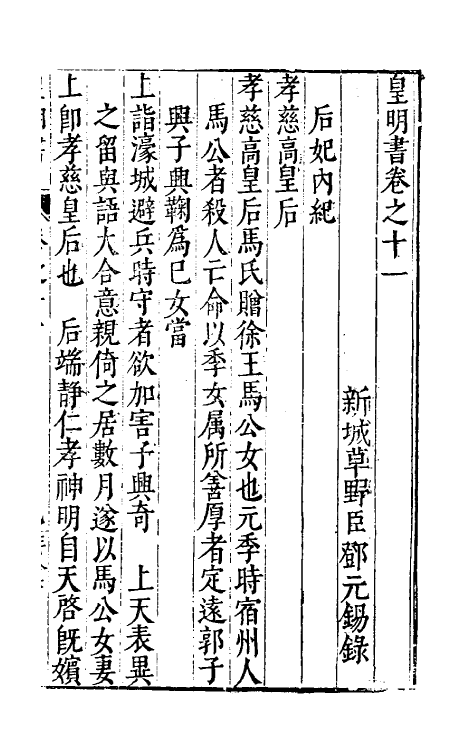 皇明書卷之十一
新城草野臣鄧元錫錄
后妃內紀
孝慈高皇后
孝慈高皇后馬氏贈徐王馬公女也元季時宿州人
馬公者殺人亡命以季女属所善厚者定遠郭子
興子興鞠爲已女當
上詣濠城避兵時守者欲加害子興奇　上天表異
之留與語大合意親倚之居數月遂以馬公女妻
上卽孝慈皇后也　后端靜仁孝神明自天啓旣嬪